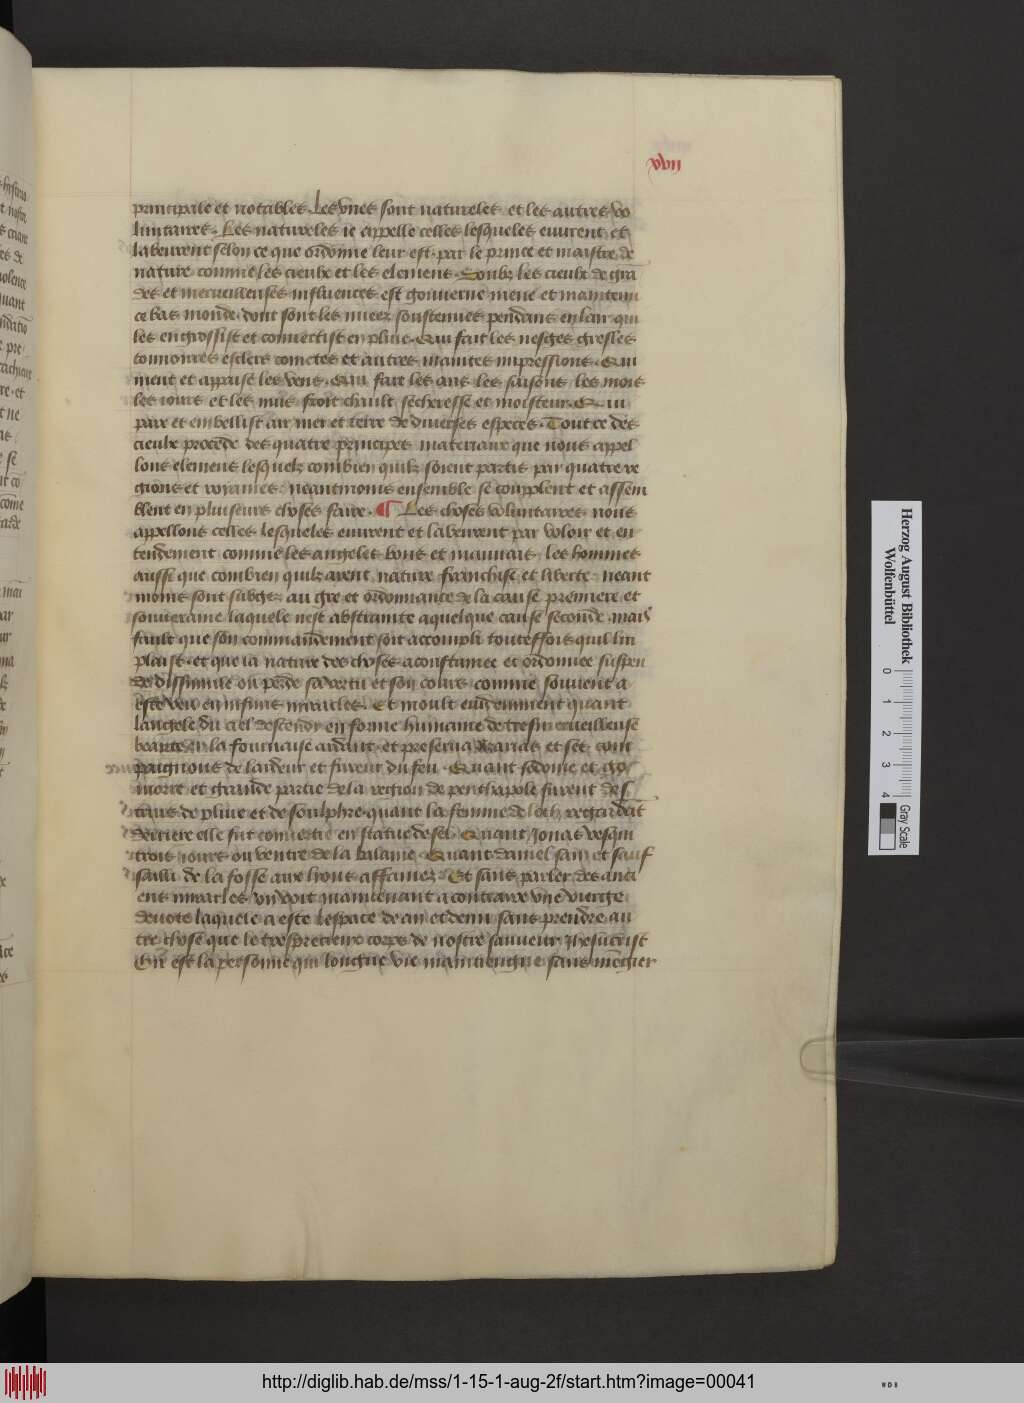 xvii
principale et notables. Les vnes sont natureles et les autres vo
luntaires. Les natureles ie appelle celles lesqueles euurent et
labeurent selon ce que ordonne leur est par le prince et maistre de
nature comme les cieulx et les elemens. Soubz les cieulx de grā
des et merueilleuses influences est gouuerne mene et maintenu
ce bas monde. dont sont les nuees soustenues pendans en lair qui
les engrossist et conuertist en pluie. Qui fait les neges gresles
tonnoirres esclers cometes et autres maintes impressions. Qui
ment et appaise les vens. Qui fait les ans les saisons les mois
les iours et les nuis froit chault secheresse et moisteur. Qui
paix et embellist air mer et terre de diuerses especes. Tout ce des
cieulx procede des quatre principes materiaux que nous appel
lons elemens lesquelz combien quilz soient partis par quatre re
gions et royames. neantmoins ensemble se couplent et assem
blent en pluiseurs choses faire. ¶ Les choses voluntaires nous
appellons celles lesqueles euurent et labeurent par voloir et en
tendement comme les angeles bons et mauuais les hommes
aussi que combien quilz aient nature franchise et liberte neant
moins sont subgez au gre et ordonnance de la cause premiere et
souueraine laquele nest abstrainte a quelque cause seconde. mais
fault que son commandement soit accompli touteffois quil lui
plaist. et que la nature des choses acoustumee et ordonnee suspen
de dissimule ou perde sa vertu et son cours comme souuent a
este veu en infinis miracles. Et moult euidemment quant
langele du ciel descendy en forme humaine de tresmerueilleuse
beaute en la fournaise ardant et preserua Azarias et ses com
paignons de lardeur et fureur du feu. Quant sodome et go
morre et grande partie de la region de penthapole furent des
truis de pluie et de soulphre. quant la femme de loth regardāt
derriere elle fut conuertie en statue de sel. Quant Jonas vesqui
trois iours ou ventre de la balaine. Quant daniel sain et sauf
sailli de la fosse aux lyons affamez. Et sans parler des anci
ens miracles on voit maintenant a contraire vne vierge
deuote laquele a este lespace de an et demi sans prendre au
tre chose que le trespretieux corps de nostre sauueur Jhesucrist
Qui est la personne qui longue vie maintiengne sans mēgier
http://diglib.hab.de/mss/1-15-1-aug-2f/start.htm?image=00041
Herzog August Bibliothek
Wolfenbüttel
0 1 2 3 4
Gray Scale